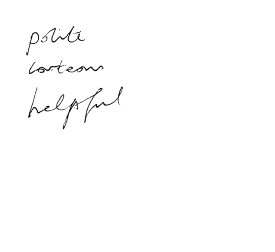 polite
corteous
helpful